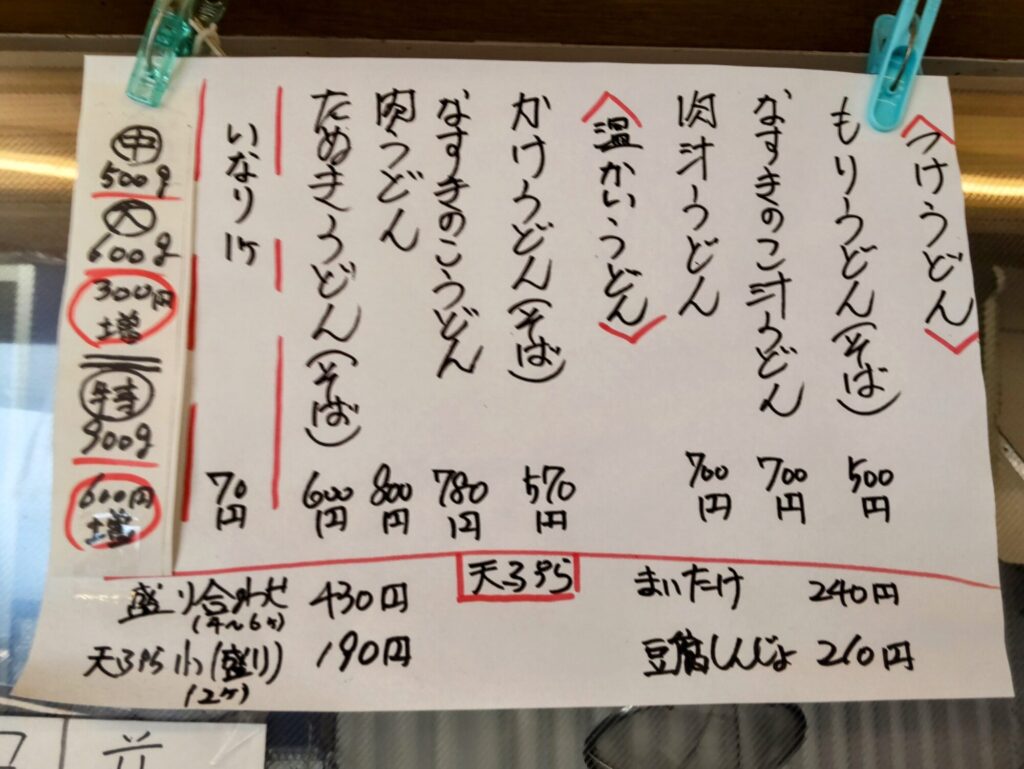 つけうどん
もりうどん(そば) 500円
なすきのこ汁うどん 700円
肉汁うどん 700円
温かいうどん
かけうどん(そば) 570円
なすきのこうどん 780円
肉うどん 800円
たぬきうどん(そば) 600円
いなり 1ケ 70円
中
500g
大
600g
300円
増
特
900g
600円
増
天ぷら
まいたけ 240円
豆腐しんじょ 210円
盛り合わせ 430円
(4〜6ヶ)
天ぷら小(盛り) 190円
(2ヶ)